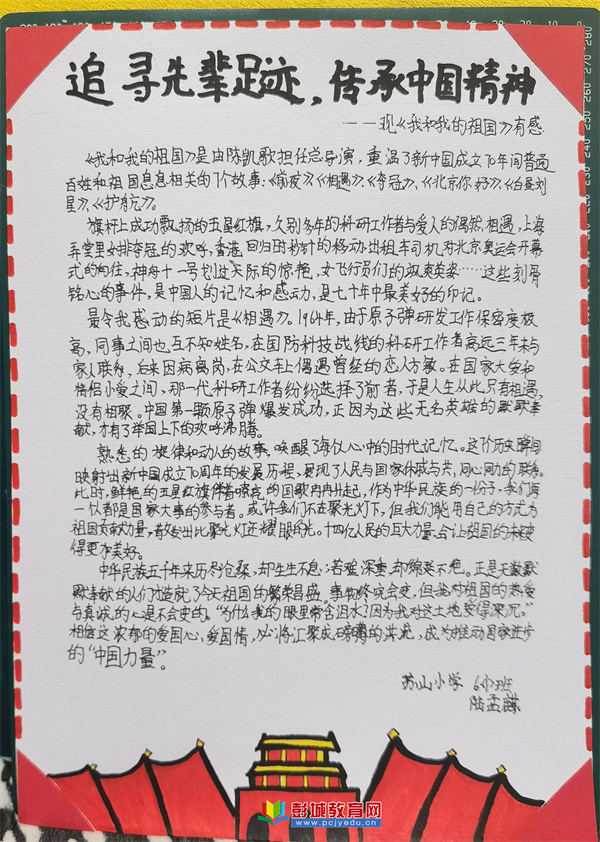 追寻先辈足迹，传承中国精神
——观《我和我的祖国》有感
《我和我的祖国》是由陈凯歌担任总导演，重温了新中国成立70年间普通
百姓和祖国息息相关的7个故事：《前夜》《相遇》《夺冠》、《北京你好》、《白昼流
星》、《护航》。
旗杆上成功飘扬的五星红旗，久别多年的科研工作者与爱人的偶然相遇，上海
弄堂里女排夺冠的欢呼，香港回归时秒针的移动，出租车司机对北京奥运会开幕
式的向往，神舟十一号划过天际的惊艳，女飞行员们的飒爽英姿……这些刻骨
铭心的事件，是中国人的记忆和感动，是七十年中最美好的印记。
最令我感动的短片是《相遇》。1964年，由于原子弹研发工作保密度极
高，同事之间也互不知姓名，在国防科技战线的科研工作者高远三年未与
家人联系，后来因病离岗，在公交车上偶遇曾经的恋人方敏。在国家大爱和
情侣小爱之间，那一代科研工作者纷纷选择了前者，于是人生从此只有相遇，
没有相聚。中国第一颗原子弹爆发成功，正因为这些无名英雄的默默奉
献，才有了举国上下的欢呼沸腾。
熟悉的旋律和动人的故事，唤醒了每似人心中的时代记忆。这个历史瞬间
映射出新中国成立70周年的发展历程，展现了人民与国家休戚与共，同心同力的联系。
此时，鲜艳的五星红旗伴着嘹亮的国歌冉冉升起，作为中华民族的一份子，我们每
一似都是国家大事的参与者。或许我们不在聚光灯下，但我们能用自己的方式为
祖国贡献力量，散发出比聚光灯还耀眼的光。十四亿人民的巨大力量，会让祖国的未来变
得更加美好。
中华民族五千年来历尽沧桑，却生生不息；若难深重，却绵延不绝。正是无数默
默奉献的人们造就了今天祖国的繁荣昌盛。事物终会变，但我对祖国的热爱
与真诚的心是不会变的。“为什么我的眼里常含泪水？因为我对这土地爱得深沉。”
相信这浓郁的爱国心，爱国情，必将汇聚成磅礴的洪流，成为推动国家进步
的“中国力量”。
苏山小学 6(1)班
陆孟麒
彭城教育网
www.pcjyedu.cn